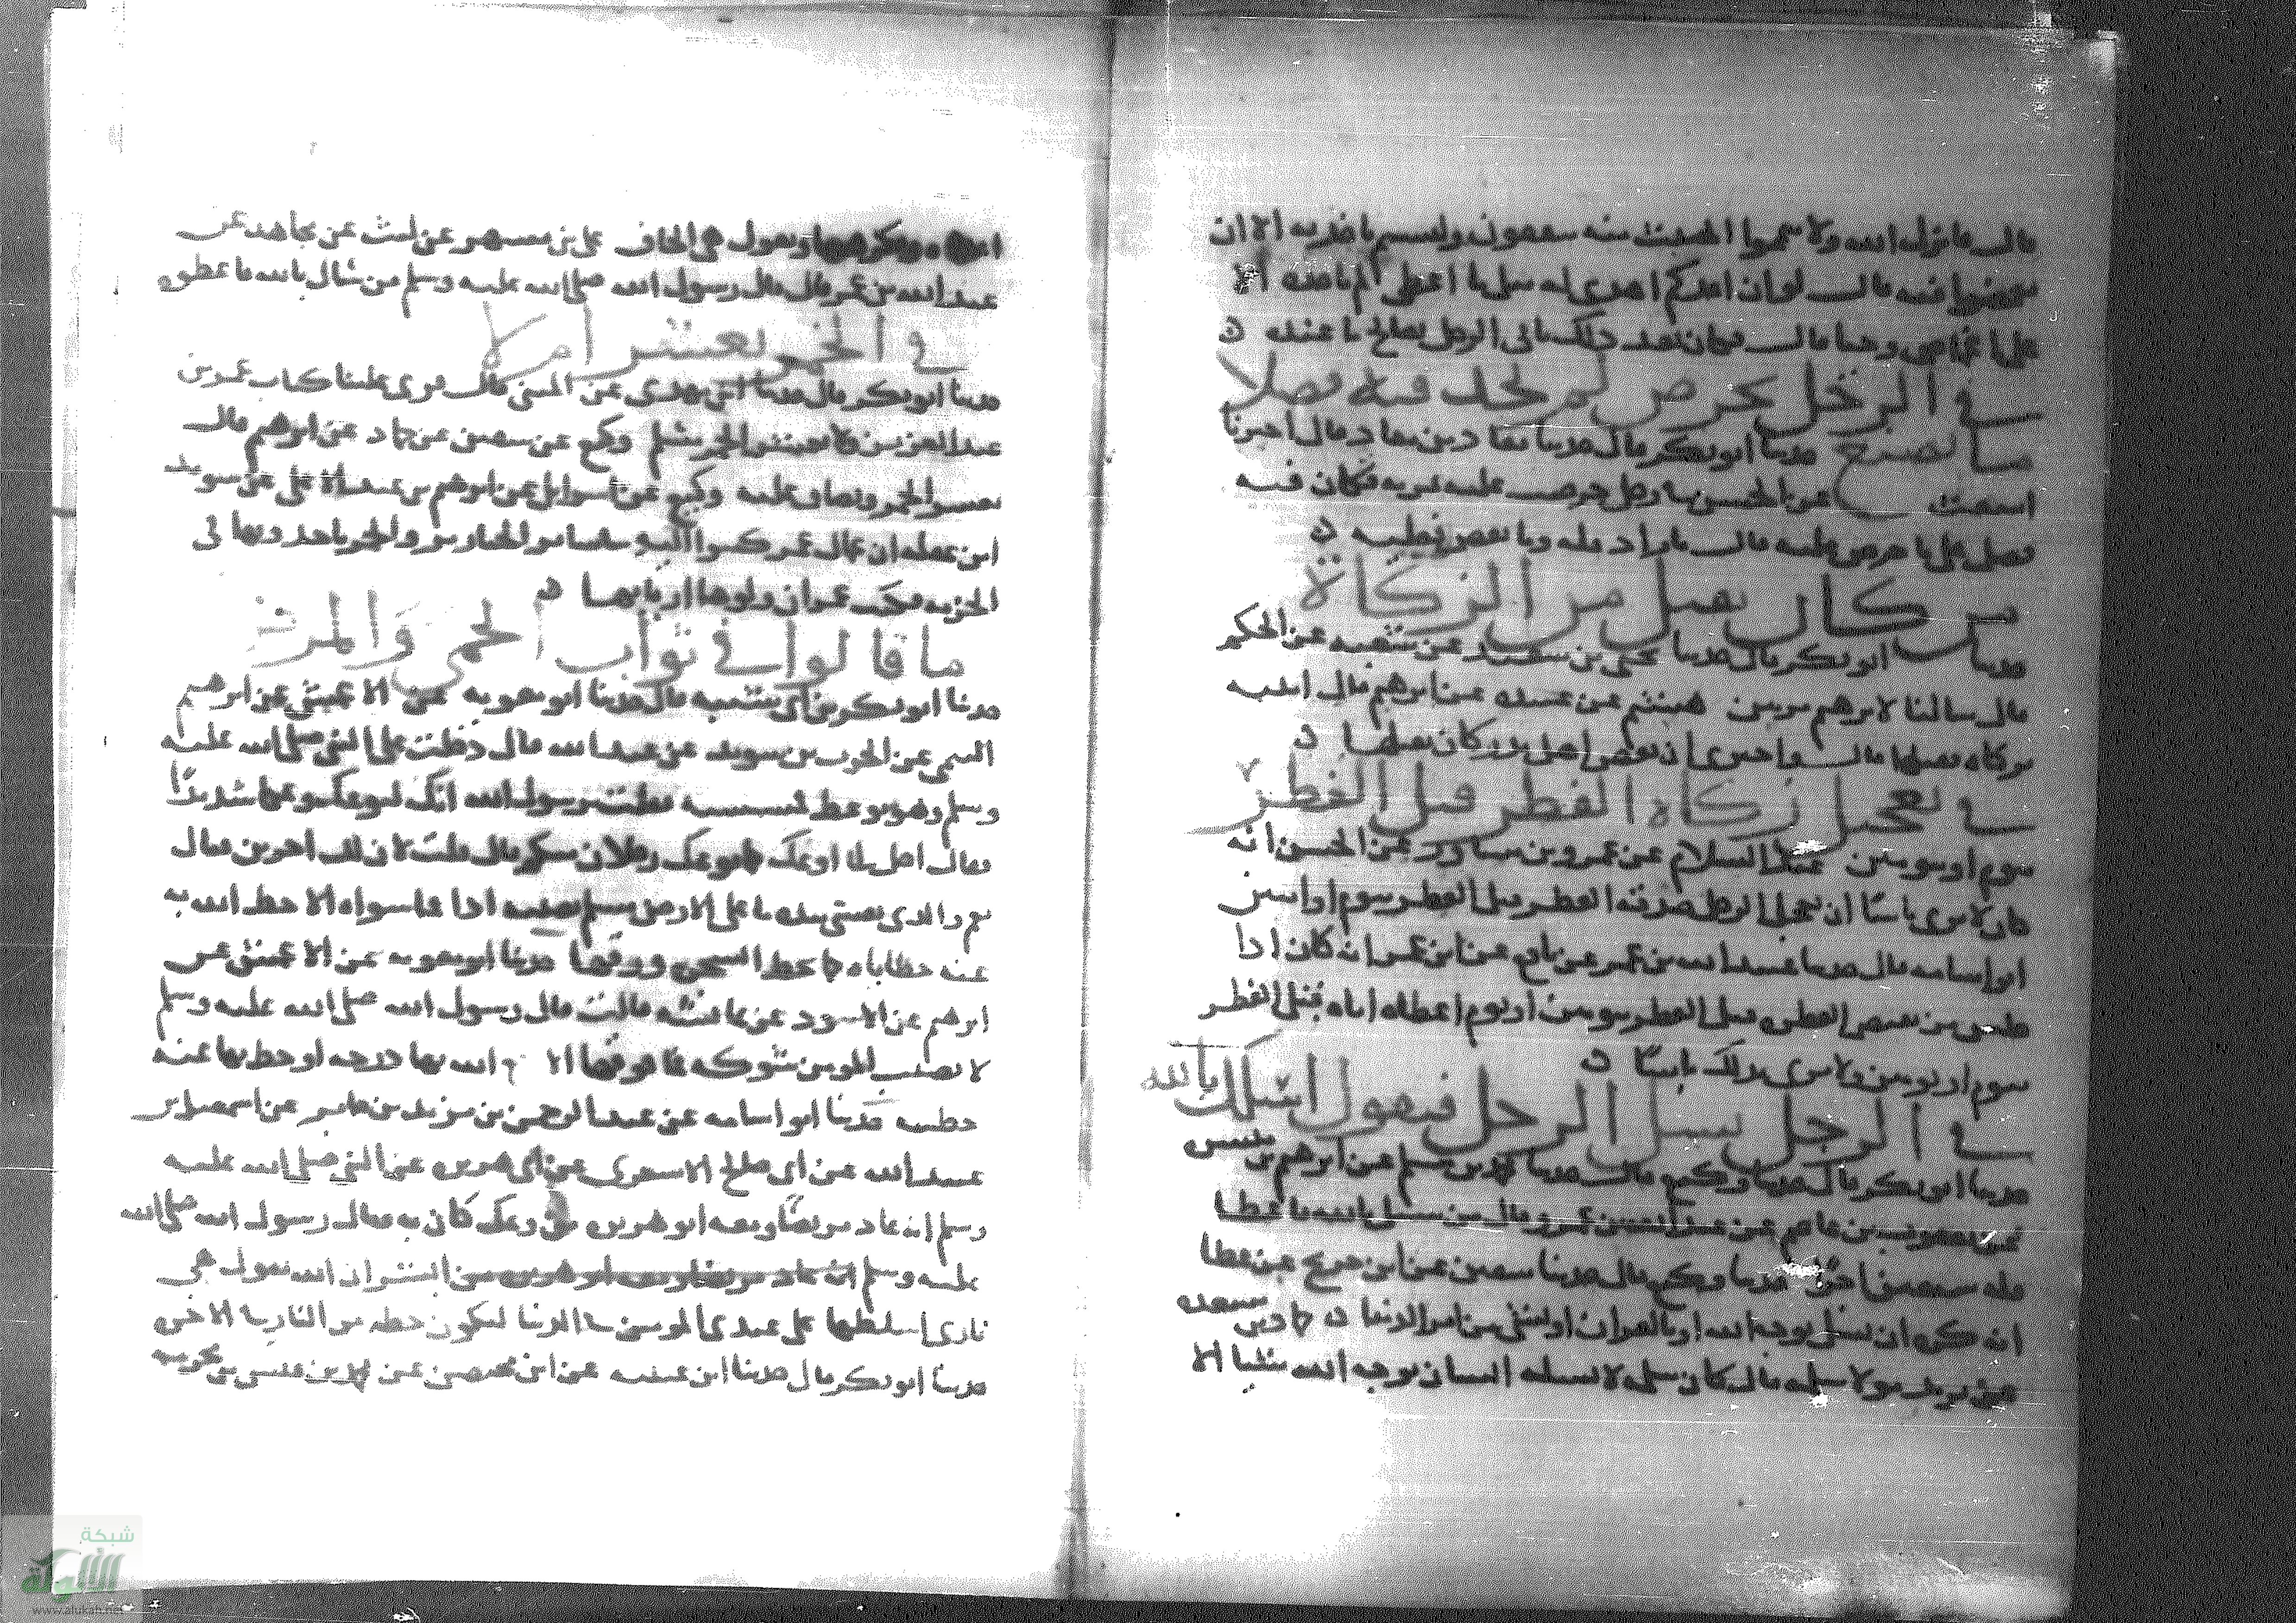 قال ما نزلت الله ولا تيمموا الخبيث منه تنفقون ولستم باخذيه الا ان
تغمضوا فيه قال لو ان احدكم اهدى له مثل ما اعطى لم ياخذه الا
على اغماض وحيا قال فكان بعد ذلك ياتي الرجل بصالح ما عنده ن
في الرجل يخرص ثم يجد فيه فضلا
ما يصنع حدثنا ابو بكر قال حدثنا معاذ بن معاذ قال اخبرنا
اشعث عن الحسن في رجل خرصت عليه ثمرته فكان فيه
فضل على ما خرص عليه قال ما زاد فله وما نقص فعليه ن
من كان يقبل من الزكاة
حدثنا ابو بكر قال حدثنا يحيى بن سعيد عن شعبة عن الحكم
قال سالنا لابرهيم هشيم عن عبيدة عن ابرهيم قال
ن
في تعجيل زكاة الفطر قبل الفطر
بيوم او يومين عبد السلام عن عمرو بن عن الحسن انه
كان لا يرى باسا ان يعجل الرجل صدقة الفطر قبل الفطر بيوم او يومين
ابو اسامة قال حدثنا عبيد الله بن عمر عن نافع عن ابن عمر انه كان اذا
جلس من يقبض الفطرة قبل الفطر بيومين او يوم اعطاه اياه قبل الفطر
بيوم او يومين ولا يرى بذلك باسا ن
في الرجل يسل الرجل فيقول اسلك بالله
حدثنا ابو بكر قال حدثنا وكيع قال حدثنا محمد بن مسلم عن ابرهيم بن ميسرة
عن يعقوب بن عاصم عن عبد الله بن عمرو قال من سيل بالله فاعطى
فله سبعون اجرا حدثنا وكيع قال حدثنا سفين عن ابن جريج عن عطا
انه كره ان يسل بوجه الله او بالقران او لشي من امر الدنيا ن حماد بن مسعدة
عن يزيد مولا سلمة قال كان سلمة لا يسله انسان بوجه الله شيا الا
اعطاه ويكرهها ويقول هي الحاف علي بن مسهر عن ليث عن مجاهد عن
عبد الله بن عمر قال قال رسول الله صلى الله عليه وسلم من سال بالله فاعطوه
في الخمر تعشر ام لا
حدثنا ابو بكر قال حدثنا ابن مهدي عن المثنى قال قرى علينا كتاب عمر بن
عبد العزيز ان لا يعشر الخمر مسلم وكيع عن سفين عن حماد عن ابرهيم قال
يعشر الخمر ويضاعف عليه وكيع عن اسرايل عن ابرهيم بن عبد الاعلى عن سويد
ابن غفلة ان عمال عمر كتبوا اليه في شان الخنازير والخمر ياخذونها في
الجزية فكتب عمر ان ولوها اربابها ن
ما قالوا في ثواب الحمى والمرض
حدثنا ابو بكر بن ابي شيبة قال حدثنا ابو معوية عن الاعمش عن ابرهيم
التيمي عن الحرث بن سويد عن عبد الله قال دخلت على النبي صلى الله عليه
وسلم وهو يوعك فمسسته فقلت يرسول الله انك لتوعك وعكا شديدا
فقال اجل اني اوعك كما يوعك رجلان منكم قال قلت لان لك اجرين قال
نعم والذي نفسي بيده ما على الارض مسلم يصيبه اذا فما سواه الا حط الله به
عنه خطاياه كما تحط الشجر ورقها حدثنا ابو معوية عن الاعمش عن
ابرهيم عن الاسود عن عائشة قالت قال رسول الله صلى الله عليه وسلم
لا يصيب المومن شوكة فما فوقها الا رفعه الله بها درجة او حط بها عنه
خطية حدثنا ابو اسامة عن عبد الرحمن بن يزيد بن جابر عن اسمعيل بن
عبيد الله عن ابي صالح الاشعري عن ابي هريرة عن النبي صلى الله عليه
وسلم انه عاد مريضا ومعه ابو هريرة من وعك كان به فقال رسول الله صلى الله
عليه وسلم انه عاد مريضا ومعه ابو هريرة من ابشر ان الله يقول هي
ناري اسلطها على عبدي المومن في الدنيا لتكون حظه من النار في الاخرة
حدثنا ابو بكر قال حدثنا ابن عيينة عن ابن محيصن عن محمد بن قيس بن مخرمة